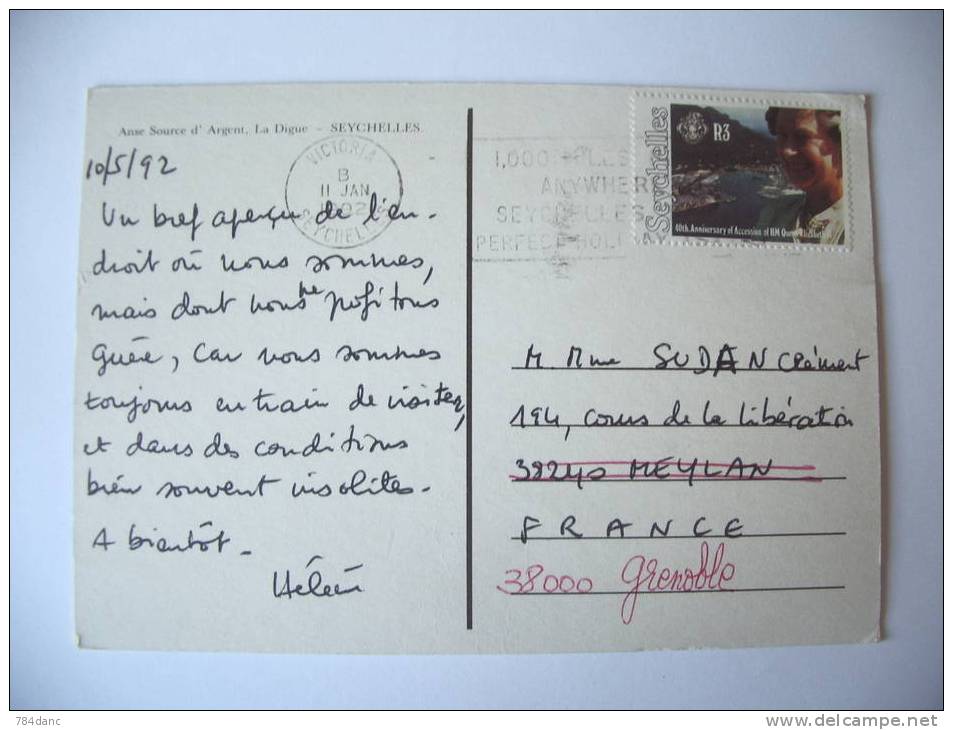 Anse Source d' Argent, La Digue - SEYCHELLES.
10/5/92
VICTORIA
B
11 JAN
SEYCHELLES
1,000 MILES
ANYWHER
SEYCHELLES
PERFECT HOLI
Seychelles
R3
40th Anniversary of Accession of HM Queen Elizabeth
Un bref aperçu de l'en-
droit où nous sommes,
mais dont nous ne profitons
guère, car nous sommes
toujours en train de visiter,
et dans des conditions
bien souvent insolites.
A bientôt -
Hélène
M. Mme SUDAN Clément
194, cours de la libération
38240 MEYLAN
FRANCE
38000 Grenoble
784danc
www.delcampe.net